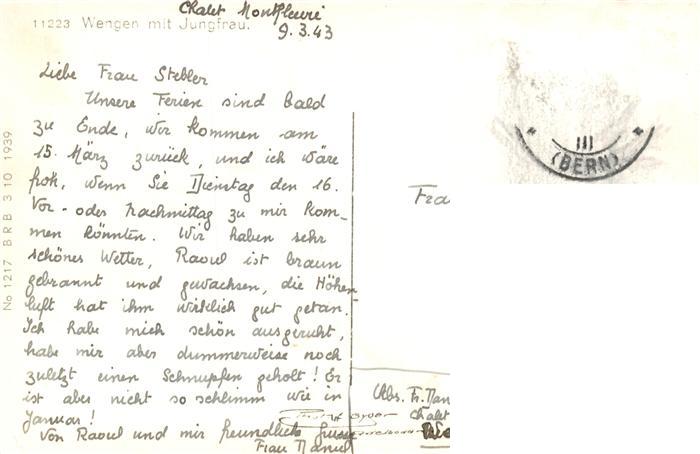 Chalet Montfleuri
11223 Wengen mit Jungfrau.
9.3.43
Liebe Frau Stebler
Unsere Ferien sind bald
zu Ende, wir kommen am
15. März zurück, und ich wäre
froh, wenn Sie Dienstag den 16.
Vor- oder Nachmittag zu mir kom-
men könnten. Wir haben sehr
schönes Wetter, Raoul ist braun
gebrannt und gewachsen, die Höhen
luft hat ihm wirklich gut getan.
Ich habe mich schön ausgeruht,
habe mir aber dummerweise noch
zuletzt einen Schnupfen geholt! Er
ist aber nicht so schlimm wie in
Januar!
Von Raoul und mir freundlich
Frau
No 1217 BRB 3 10 1939
III
(BERN)
Fra
Abs. Fr.
Chalet